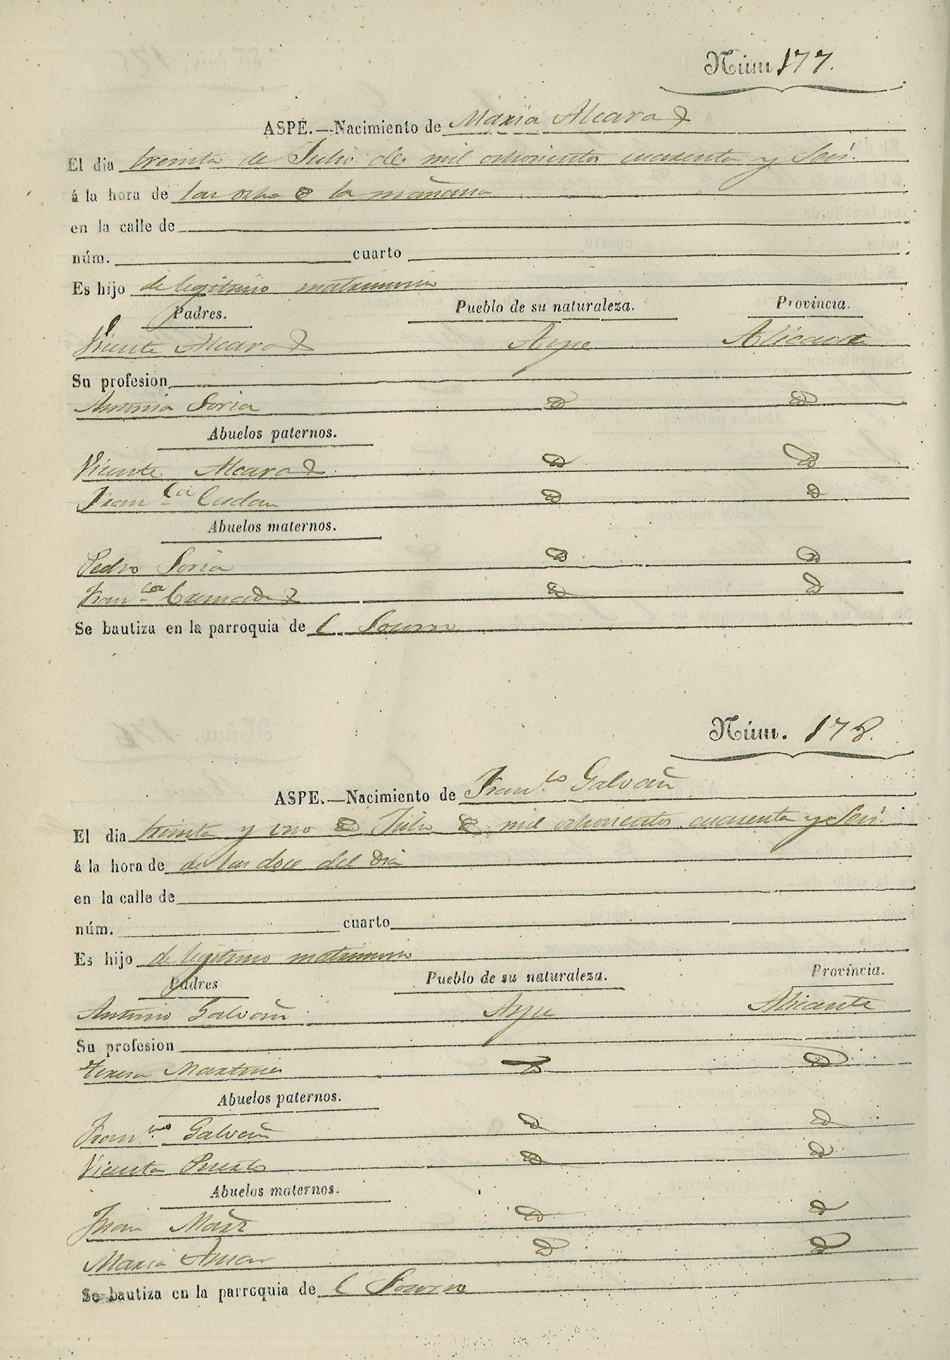 Núm 177.
ASPE.—Nacimiento de Maria Alcaraz
El dia treinta de Julio de mil ochocientos cuarenta y seis.
á la hora de las ocho de la mañana
en la calle de
núm. cuarto
Es hijo de legitimo matrimonio
Padres. Pueblo de su naturaleza. Provincia.
Vicente Alcaraz Aspe Alicante
Su profesion
Antonia Soria
Abuelos paternos.
Vicente Alcaraz
Fran.ca
Abuelos maternos.
Pedro Soria
Fran.ca
Se bautiza en la parroquia de
Núm. 178.
ASPE.—Nacimiento de Fran.co Galvañ
El dia treinta y uno de Julio de mil ochocientos cuarenta y seis
á la hora de de las doce del dia
en la calle de
núm. cuarto
Es hijo de legitimo matrimonio
Padres Pueblo de su naturaleza. Provincia.
Antonio Galvañ Aspe Alicante
Su profesion
Teresa Martinez
Abuelos paternos.
Fran.co Galvañ
Vicenta
Abuelos maternos.
Juan
Maria
Se bautiza en la parroquia de